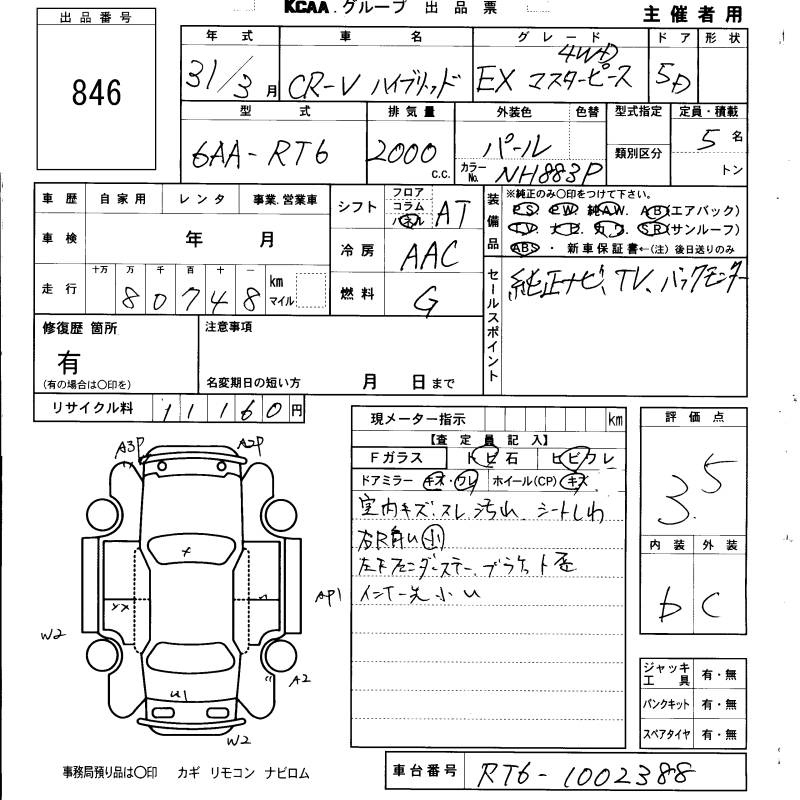 KCAA.グループ 出品票 主催者用
出品番号
846
年式 車名 グレード ドア 形状
31/3月 CR-V ハイブリッド EX マスターピース 4WD 5D
型式 排気量 外装色 色替 型式指定 定員・積載
6AA-RT6 2000 c.c. パール 類別区分 5名
カラーNo. NH883P トン
車歴 自家用 レンタ 事業.営業車
シフト フロア コラム パネル AT
装備品 ※純正のみ〇印をつけて下さい。
PS. PW. 純AW. AB(エアバック)
TV. ナビ. カワ. SR(サンルーフ)
ABS ・ 新車保証書←(注)後日送りのみ
車検 年 月
冷房 AAC
走行 十万 万 千 百 十 一
80748 km マイル
燃料 G
セールスポイント 純正ナビ、TV、バックモニター
修復歴 箇所
有
(有の場合は〇印を)
注意事項
名変期日の短い方 月 日まで
リサイクル料 11160円
現メーター指示 km
評価点
3.5
【査定員記入】
Fガラス トビ石 ヒビワレ
ドアミラー キズ・ワレ ホイール(CP) キズ
室内キズ.スレ.汚れ、シートしわ
小
ブラケット歪
内装 外装
b C
A3P A2P
AP1
W2
YX
A2
U1
W2
ジャッキ工具 有・無
パンクキット 有・無
スペアタイヤ 有・無
事務局預り品は〇印 カギ リモコン ナビロム
車台番号 RT6-1002388